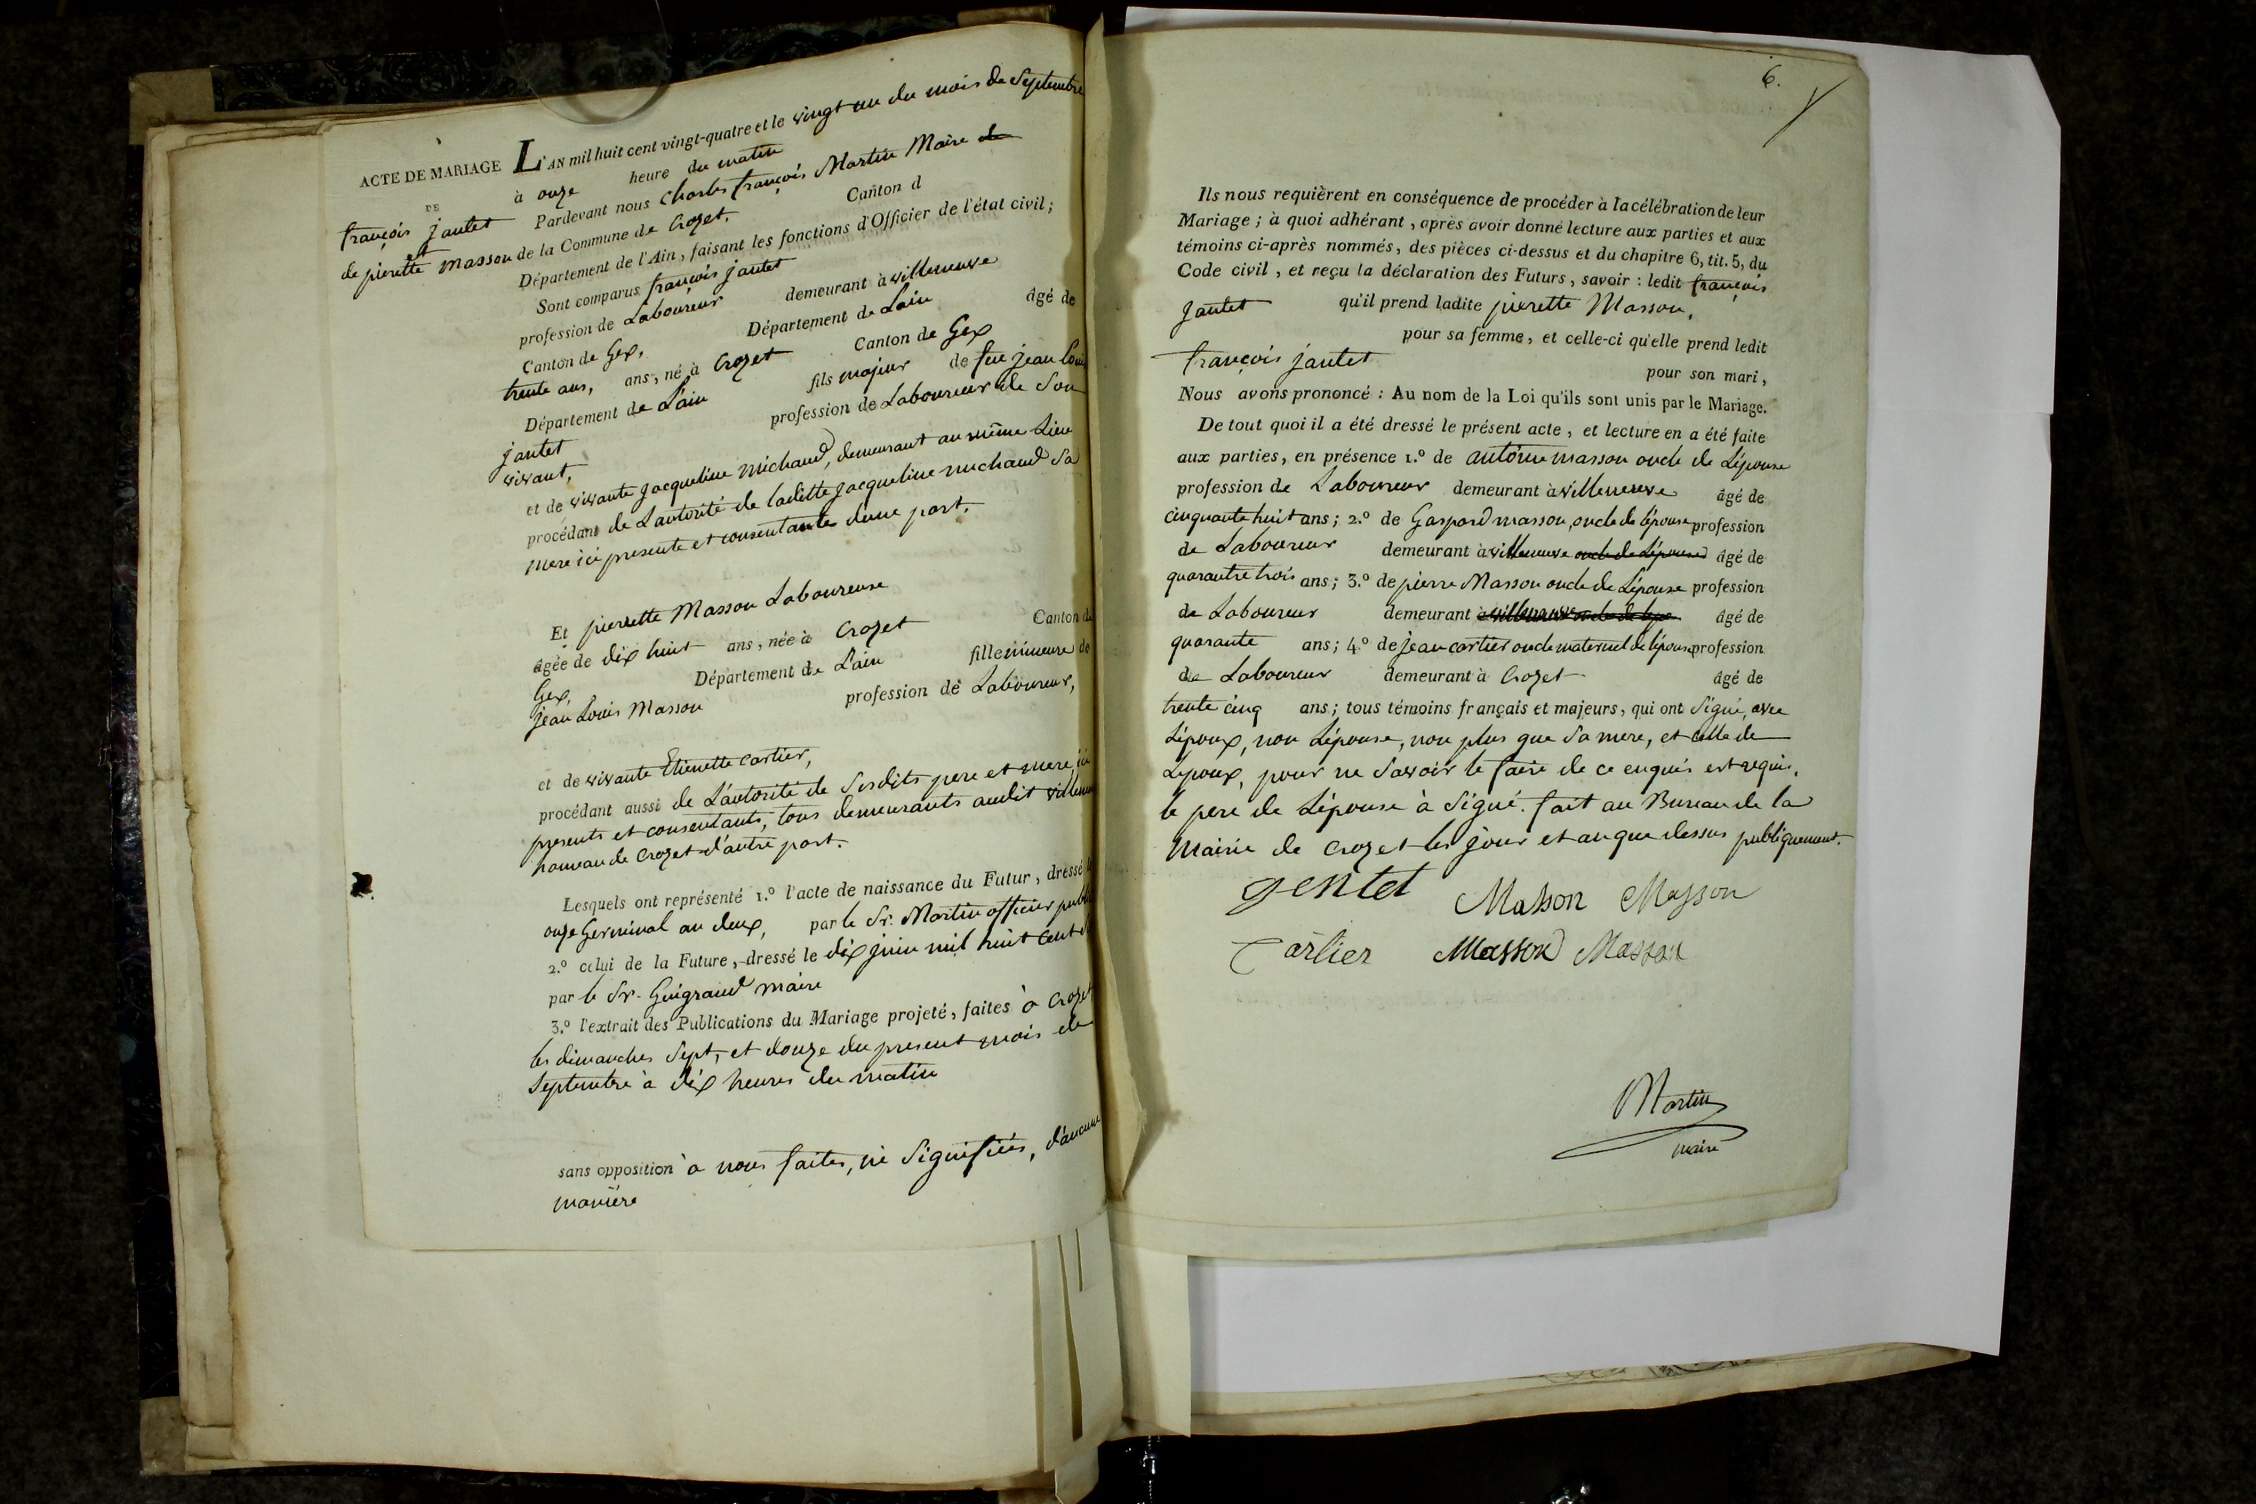 ACTE DE MARIAGE
DE
françois jantet
et
de pierette Masson
L'AN mil huit cent vingt-quatre et le vingt un du mois de Septembre
à onze heure du matin
Pardevant nous Charles françois Martin Maire de
de la Commune de Crozet, Canton d
Département de l'Ain, faisant les fonctions d'Officier de l'état civil;
Sont comparus françois jantet
profession de Laboureur demeurant à villeneuve
Canton de Gex, Département de Lain âgé de
trente ans, ans, né à Crozet Canton de Gex
Département de L'ain fils majeur de feu jean Louis
jantet profession de Laboureur de Son
vivant,
et de vivante jacqueline Michaud, demeurant au même Lieu
procédant de L'autorité de laditte jacqueline michaud Sa
mere ici presente et consentante dune part.
Et pierrette Masson Laboureuse
âgée de dix huit ans, née à Crozet Canton de
Gex, Département de L'ain fille mineure de
jean Louis Masson profession de Laboureur,
et de vivante Etienette Cartier,
procédant aussi de L'autorité de Sesdits pere et mere ici
presents et consentants, tous demeurants audit villeneuve
hameau de Crozet d'autre part.
Lesquels ont représenté 1.º l'acte de naissance du Futur, dressé le
onze Germinal an deux, par le Sr. Martin officier public
2.º celui de la Future, dressé le dix juin mil huit cent
par le Sr. Guigraud maire
3.º l'extrait des Publications du Mariage projeté, faites à Crozet
les dimanches Sept, et douze du present mois de
Septembre à dix heures du matin
sans opposition à nous faites, ni Signifiées, d'aucune
manière
6.
Ils nous requièrent en conséquence de procéder à la célébration de leur
Mariage; à quoi adhérant, après avoir donné lecture aux parties et aux
témoins ci-après nommés, des pièces ci-dessus et du chapitre 6, tit. 5, du
Code civil, et reçu la déclaration des Futurs, savoir: ledit françois
jantet qu'il prend ladite pierette Masson,
pour sa femme, et celle-ci qu'elle prend ledit
françois jantet
pour son mari,
Nous avons prononcé: Au nom de la Loi qu'ils sont unis par le Mariage.
De tout quoi il a été dressé le présent acte, et lecture en a été faite
aux parties, en présence 1.º de antoine masson oncle de Lépouse
profession de Laboureur demeurant à villeneuve âgé de
cinquante huit ans; 2.º de Gaspard masson, oncle de Lépouse profession
de Laboureur demeurant à villeneuve oncle de Lépouse âgé de
quarantre trois ans; 3.º de pierre Masson oncle de Lépouse profession
de Laboureur demeurant à villeneuve oncle de âgé de
quarante ans; 4.º de jean cartier oncle maternel de lépouse profession
de Laboureur demeurant à Crozet âgé de
trente cinq ans; tous témoins français et majeurs, qui ont Signé, avec
Lépoux, non Lépouse, non plus que Sa mere, et celle de
Lépoux, pour ne Savoir le faire de ce enquis et requis,
le pere de Lépouse à Signé. fait au Bureau de la
Mairie de Crozet les jour et an que dessus publiquement.
jentet Masson Masson
Carlier Masson Masson
Martin
maire